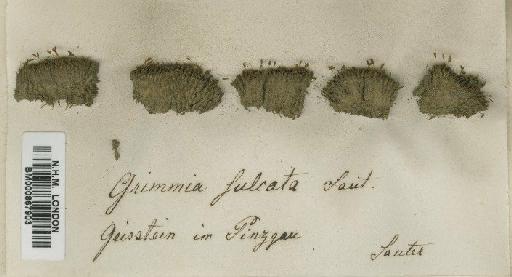 N.H.M. LONDON
BM000867903
Grimmia sulcata Saut.
Geisstein im Pinzgau
Sauter